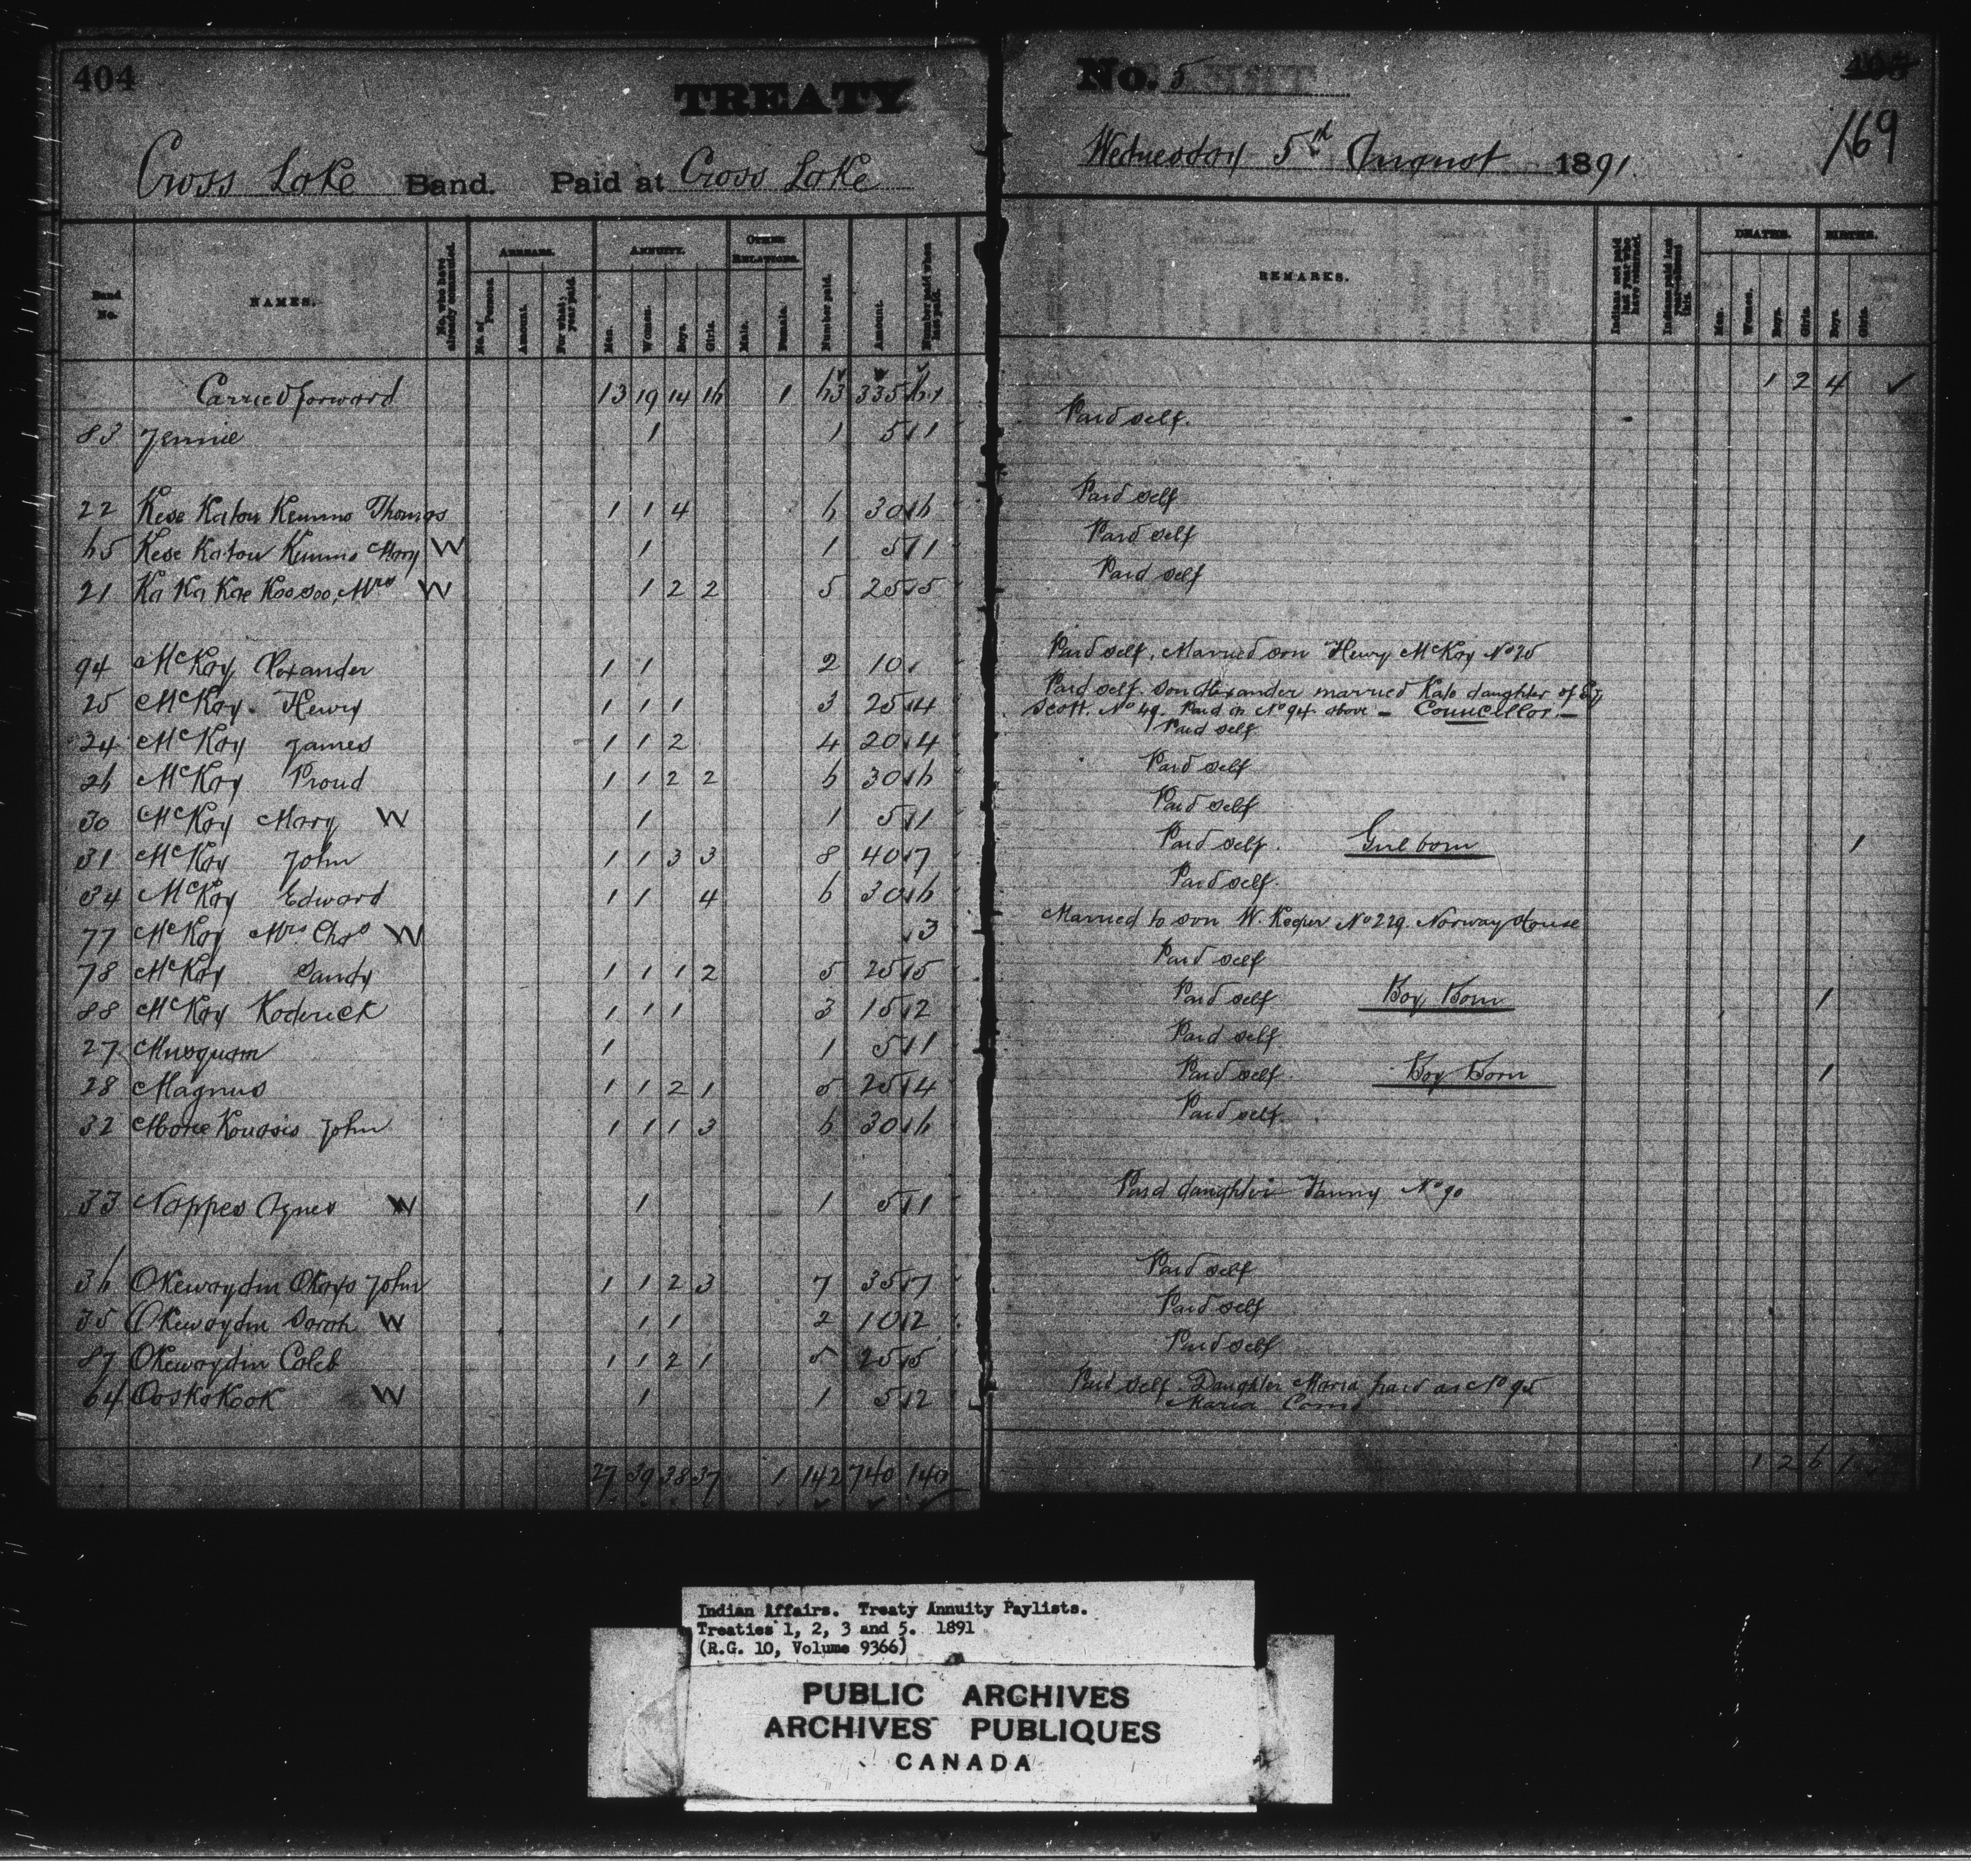 404
TREATY
No. 5
405
169
Cross Lake Band. Paid at Cross Lake
Wednesday 5th August 1891.
Band No.
NAMES.
No. who have already commuted.
ARREARS.
No. of Persons.
Amount.
For what year paid.
ANNUITY.
Men.
Women.
Boys.
Girls.
OTHER RELATIONS.
Male.
Female.
Number paid.
Amount.
Number paid when last paid.
REMARKS.
Indians not paid last year who have returned.
DEATHS.
Men.
Women.
Boys.
Girls.
BIRTHS.
Boys.
Girls.
Carried forward 13 19 14 16 1 63 335 61 1 2 4
83 Jennie 1 1 5 1 Paid self.
22 Kese Katou Kemmo Thomas 1 1 4 6 30 6 Paid self
65 Kese Katou Kemmo Mary W 1 1 5 1 Paid self
21 Ka Ka Kae Koosoo, Mrs W 1 2 2 5 25 5 Paid self
94 McKay, Alexander 1 1 2 10 Paid self. Married son Henry McKay No 25
25 McKay Henry 1 1 1 3 25 4 Paid self. Son Alexander married Kate daughter of
Scott. No 49. Paid as No 94 above – Councellor. –
24 McKay James 1 1 2 4 20 4 Paid self
26 McKay Proud 1 1 2 2 6 30 6 Paid self
30 McKay Mary W 1 1 5 1 Paid self
31 McKay John 1 1 3 3 8 40 7 Paid self. Girl born 1
34 McKay Edward 1 1 4 6 30 6 Paid self.
77 McKay Mrs Chas W 3 Married to son W. Keeper No 229. Norway House
78 McKay Sandy 1 1 1 2 5 25 5 Paid self
88 McKay Roderick 1 1 1 3 15 2 Paid self Boy Born 1
27 Musquam 1 1 5 1 Paid self
28 Magnus 1 1 2 1 5 25 4 Paid self. Boy Born 1
32 Koussis John 1 1 1 3 6 30 6 Paid self.
33 Nappes Agnes W 1 1 5 1 Paid daughter Fanny No 90
36 Okewaydin Okays John 1 1 2 3 7 35 7 Paid self
35 Okewaydin Sarah W 1 1 2 10 2 Paid self
87 Okewaydin Caleb 1 1 2 1 5 25 5 Paid self
64 Ooskokook W 1 1 5 2 Paid self. Daughter Maria paid as No 95
Maria
27 39 38 37 1 142 740 140 1 2 6 1
Indian Affairs. Treaty Annuity Paylists.
Treaties 1, 2, 3 and 5. 1891
(R.G. 10, Volume 9366)
PUBLIC ARCHIVES
ARCHIVES PUBLIQUES
CANADA